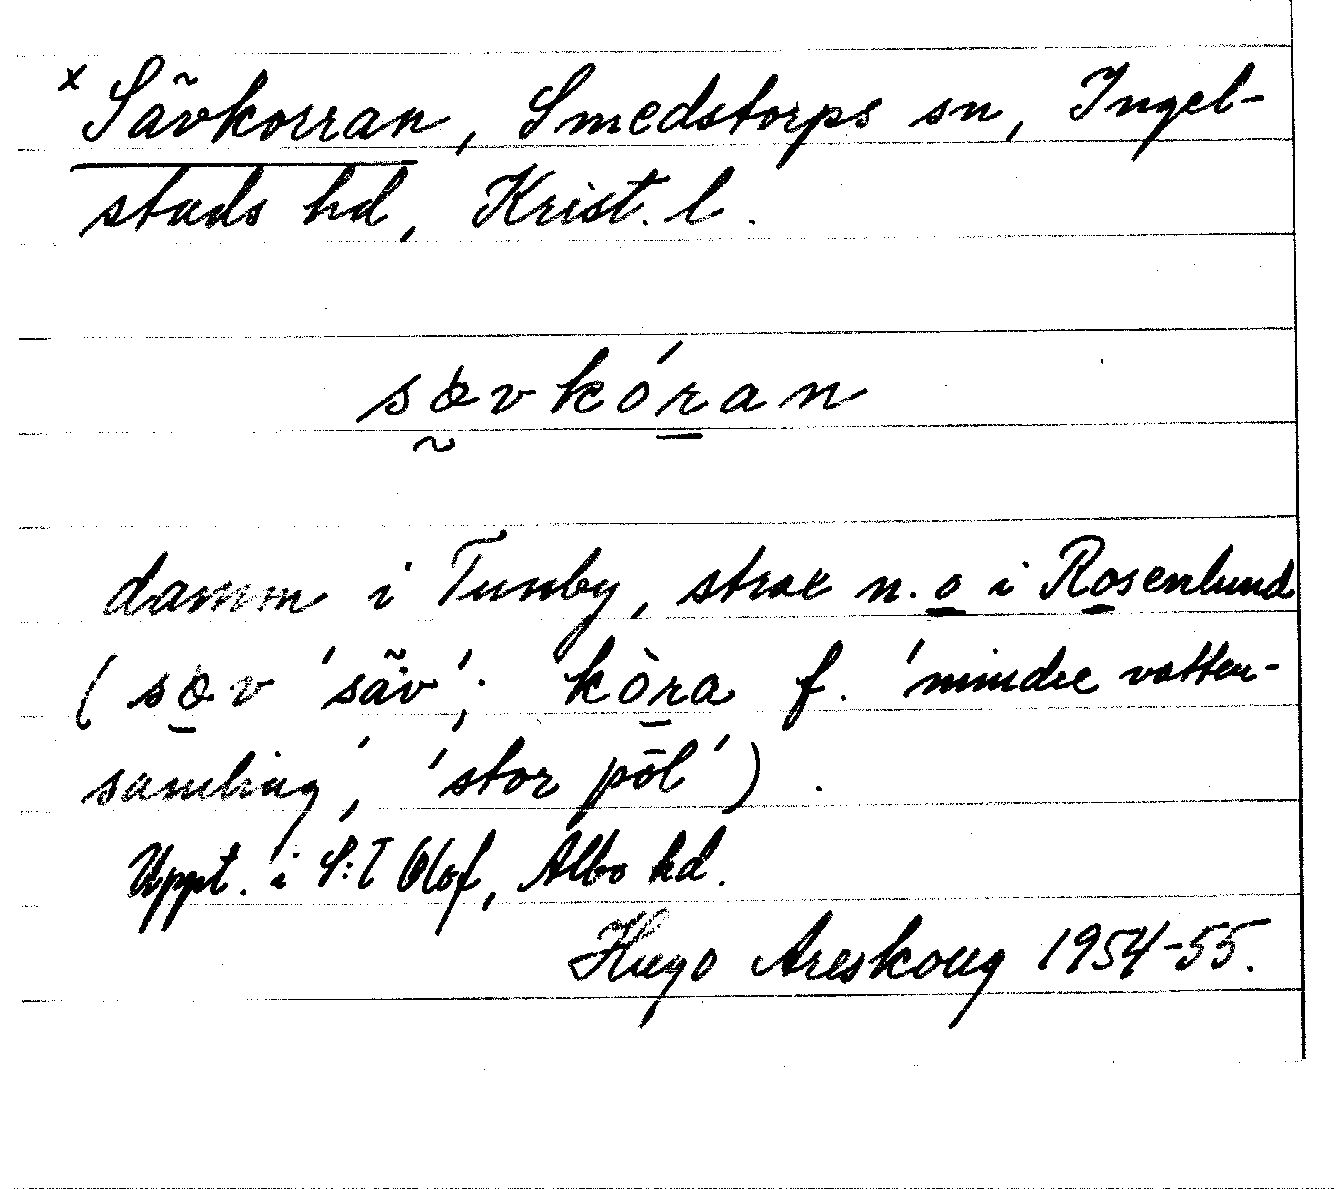 x Sävkorran, Smedstorps sn, Ingel-
stads hd, Krist. l.
sœvkóran
damm i Tunby, strax n. o i Rosenlund
(sœv 'säv'; kòra f. 'mindre vatten-
samling', 'stor pöl').
Uppt. i S:t Olof, Albo hd.
Hugo Areskoug 1954-55.